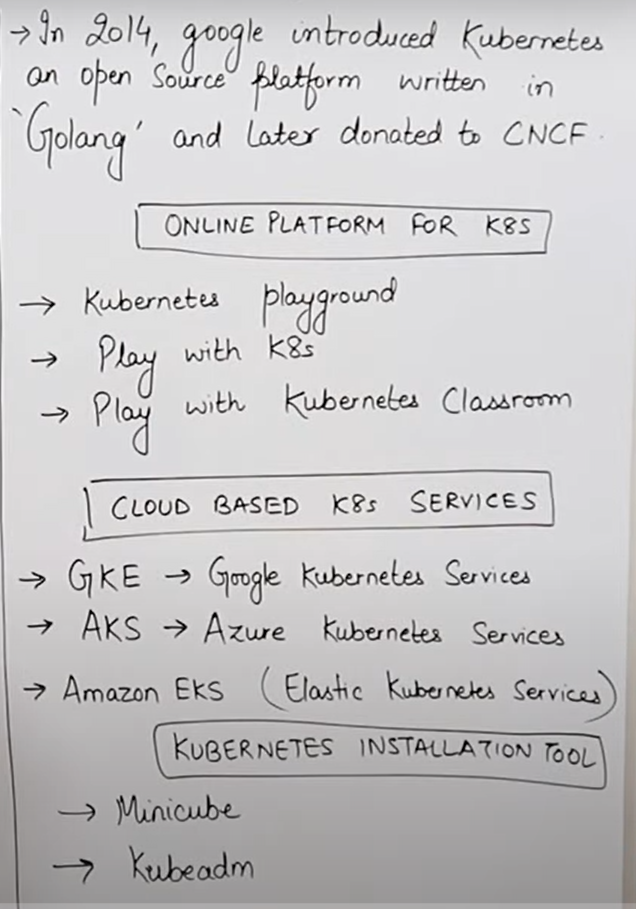 → In 2014, google introduced Kubernetes
an open Source platform written in
'Golang' and Later donated to CNCF.
ONLINE PLATFORM FOR K8S
→ Kubernetes playground
→ Play with K8s
→ Play with Kubernetes Classroom
CLOUD BASED K8s SERVICES
→ GKE → Google Kubernetes Services
→ AKS → Azure Kubernetes Services
→ Amazon EKS (Elastic Kubernetes Services)
KUBERNETES INSTALLATION TOOL
→ Minicube
→ Kubeadm